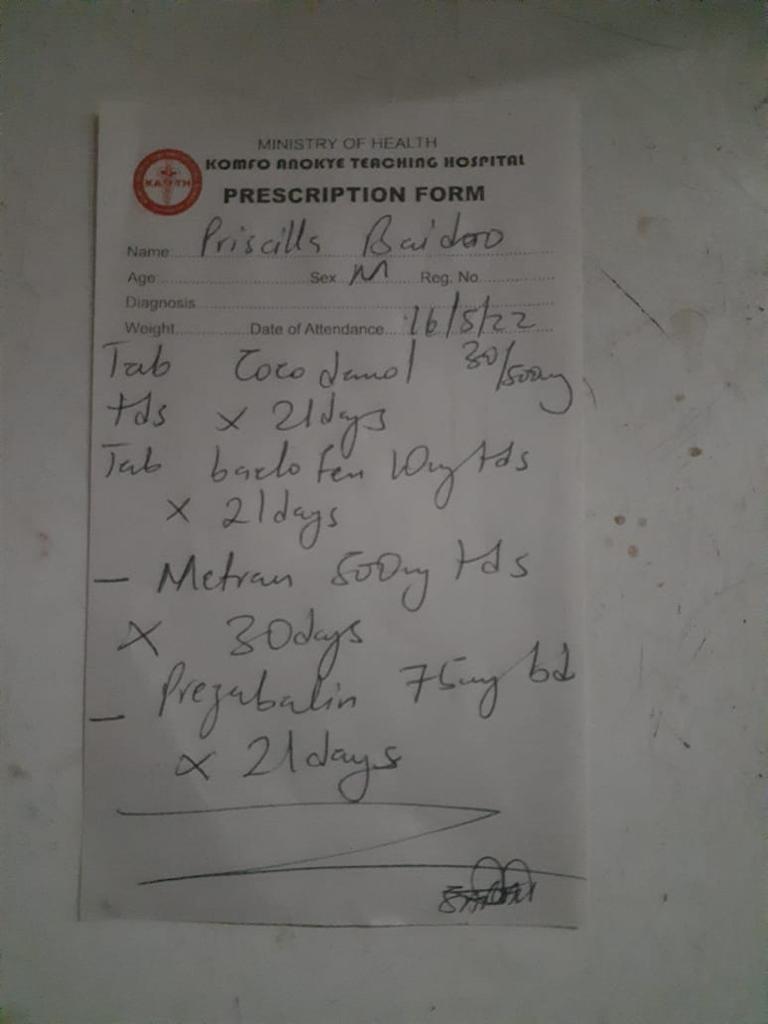 MINISTRY OF HEALTH
KOMFO ANOKYE TEACHING HOSPITAL
KATH
PRESCRIPTION FORM
Name Priscilla Baidoo
Age Sex M Reg. No.
Diagnosis
Weight Date of Attendance 16/5/22
Tab Cocodamol 30/500mg
tds x 21days
Tab baclofen 10mg tds
x 21days
- Metran 500mg tds
x 30days
- Pregabalin 75mg bd
x 21days